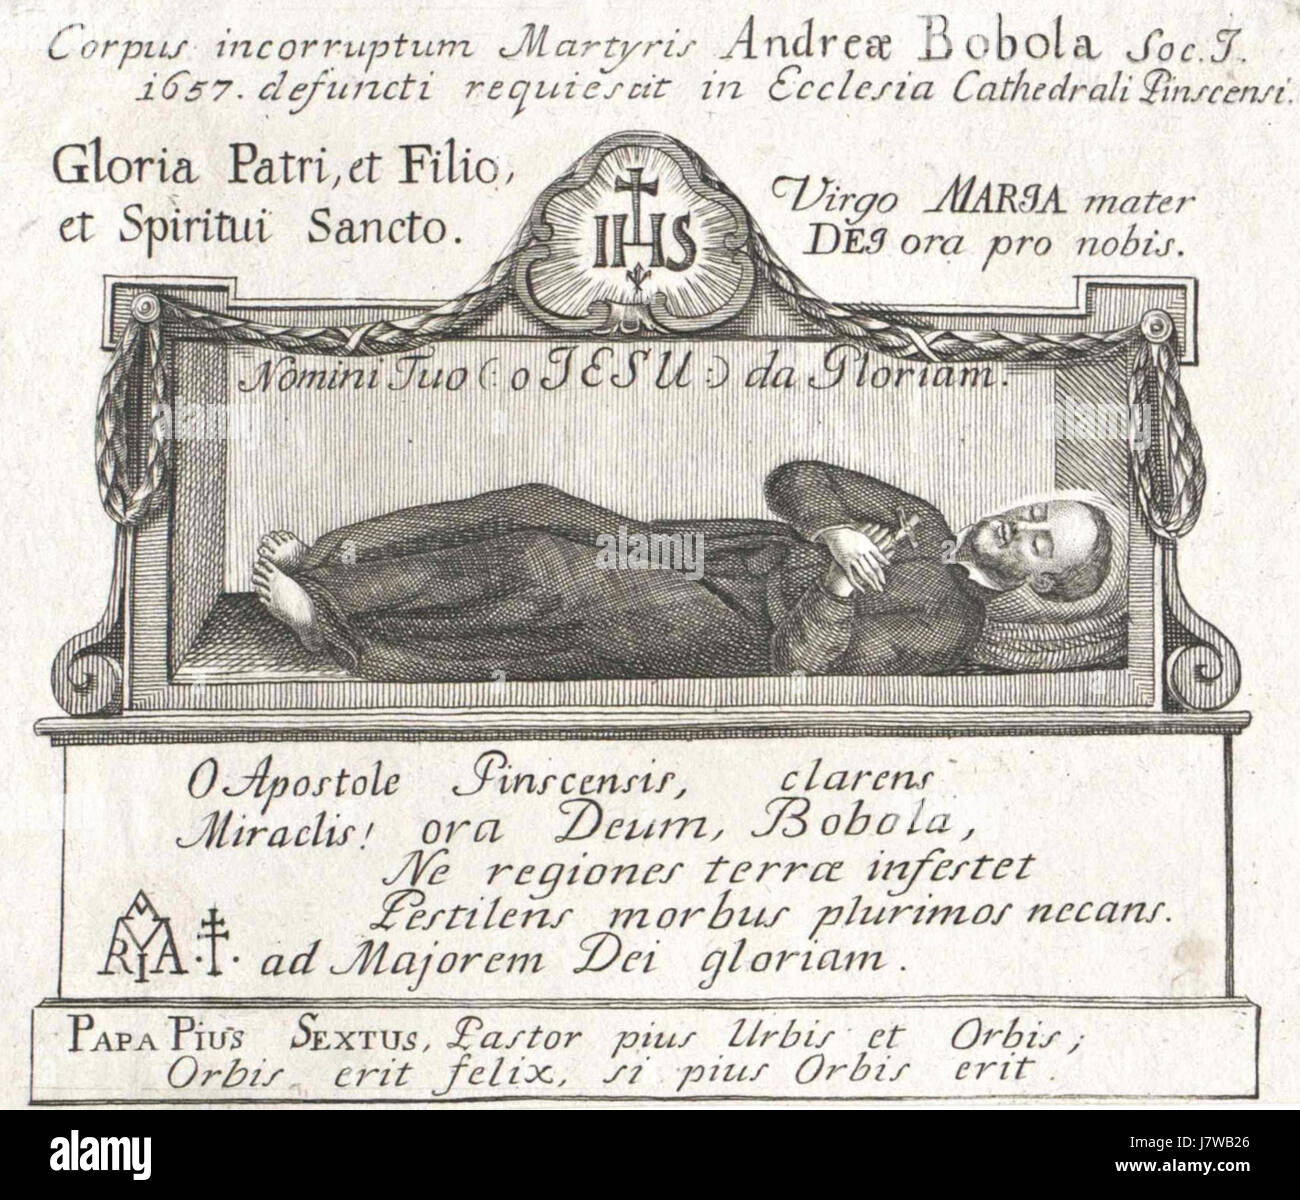 Corpus incorruptum Martyris Andreæ Bobola Soc. J.
1657. defuncti requiescit in Ecclesia Cathedrali Pinscensi.
Gloria Patri, et Filio,
et Spiritui Sancto.
IHS
Virgo MARJA mater
DEJ ora pro nobis.
Nomini Tuo (: o JESU :) da Gloriam.
O Apostole Pinscensis, clarens
Miraclis! ora Deum, Bobola,
Ne regiones terræ infestet
Pestilens morbus plurimos necans.
ad Majorem Dei gloriam.
PAPA PIUS SEXTUS, Pastor pius Urbis et Orbis;
Orbis erit felix, si pius Orbis erit.
alamy
alamy
alamy
a
a
a
a
alamy
Image ID: J7WB26
www.alamy.com